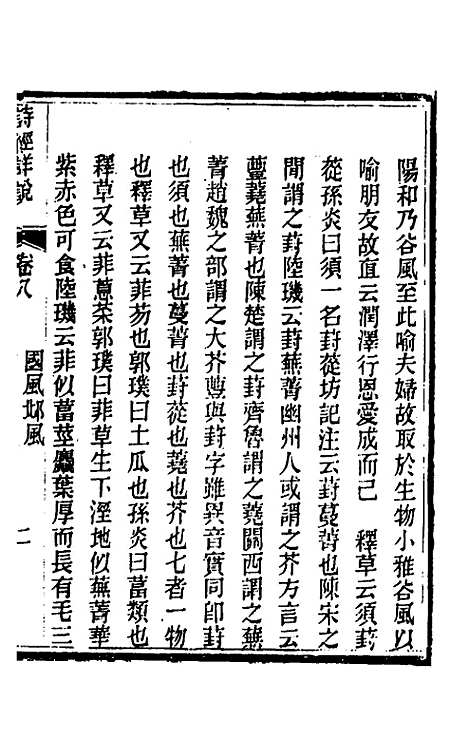 陽和乃谷風至此喻夫婦故取於生物小雅谷風以
喻朋友故直云潤澤行恩愛成而己　釋草云須葑
蓯孫炎曰須一名葑蓯坊記注云葑蔓菁也陳宋之
間謂之葑陸璣云葑蕪菁幽州人或謂之芥方言云
蘴蕘蕪菁也陳楚謂之葑齊魯謂之蕘關西謂之蕪
菁趙魏之部謂之大芥蘴與葑字雖異音實同卽葑
也須也蕪菁也蔓菁也葑蓯也蕘也芥也七者一物
也釋草又云菲芴也郭璞曰土瓜也孫炎曰葍類也
釋草又云菲蒠菜郭璞曰菲草生下溼地似蕪菁華
紫赤色可食陸璣云菲似葍莖麤葉厚而長有毛三
詩經詳說
卷八
國風邶風
二